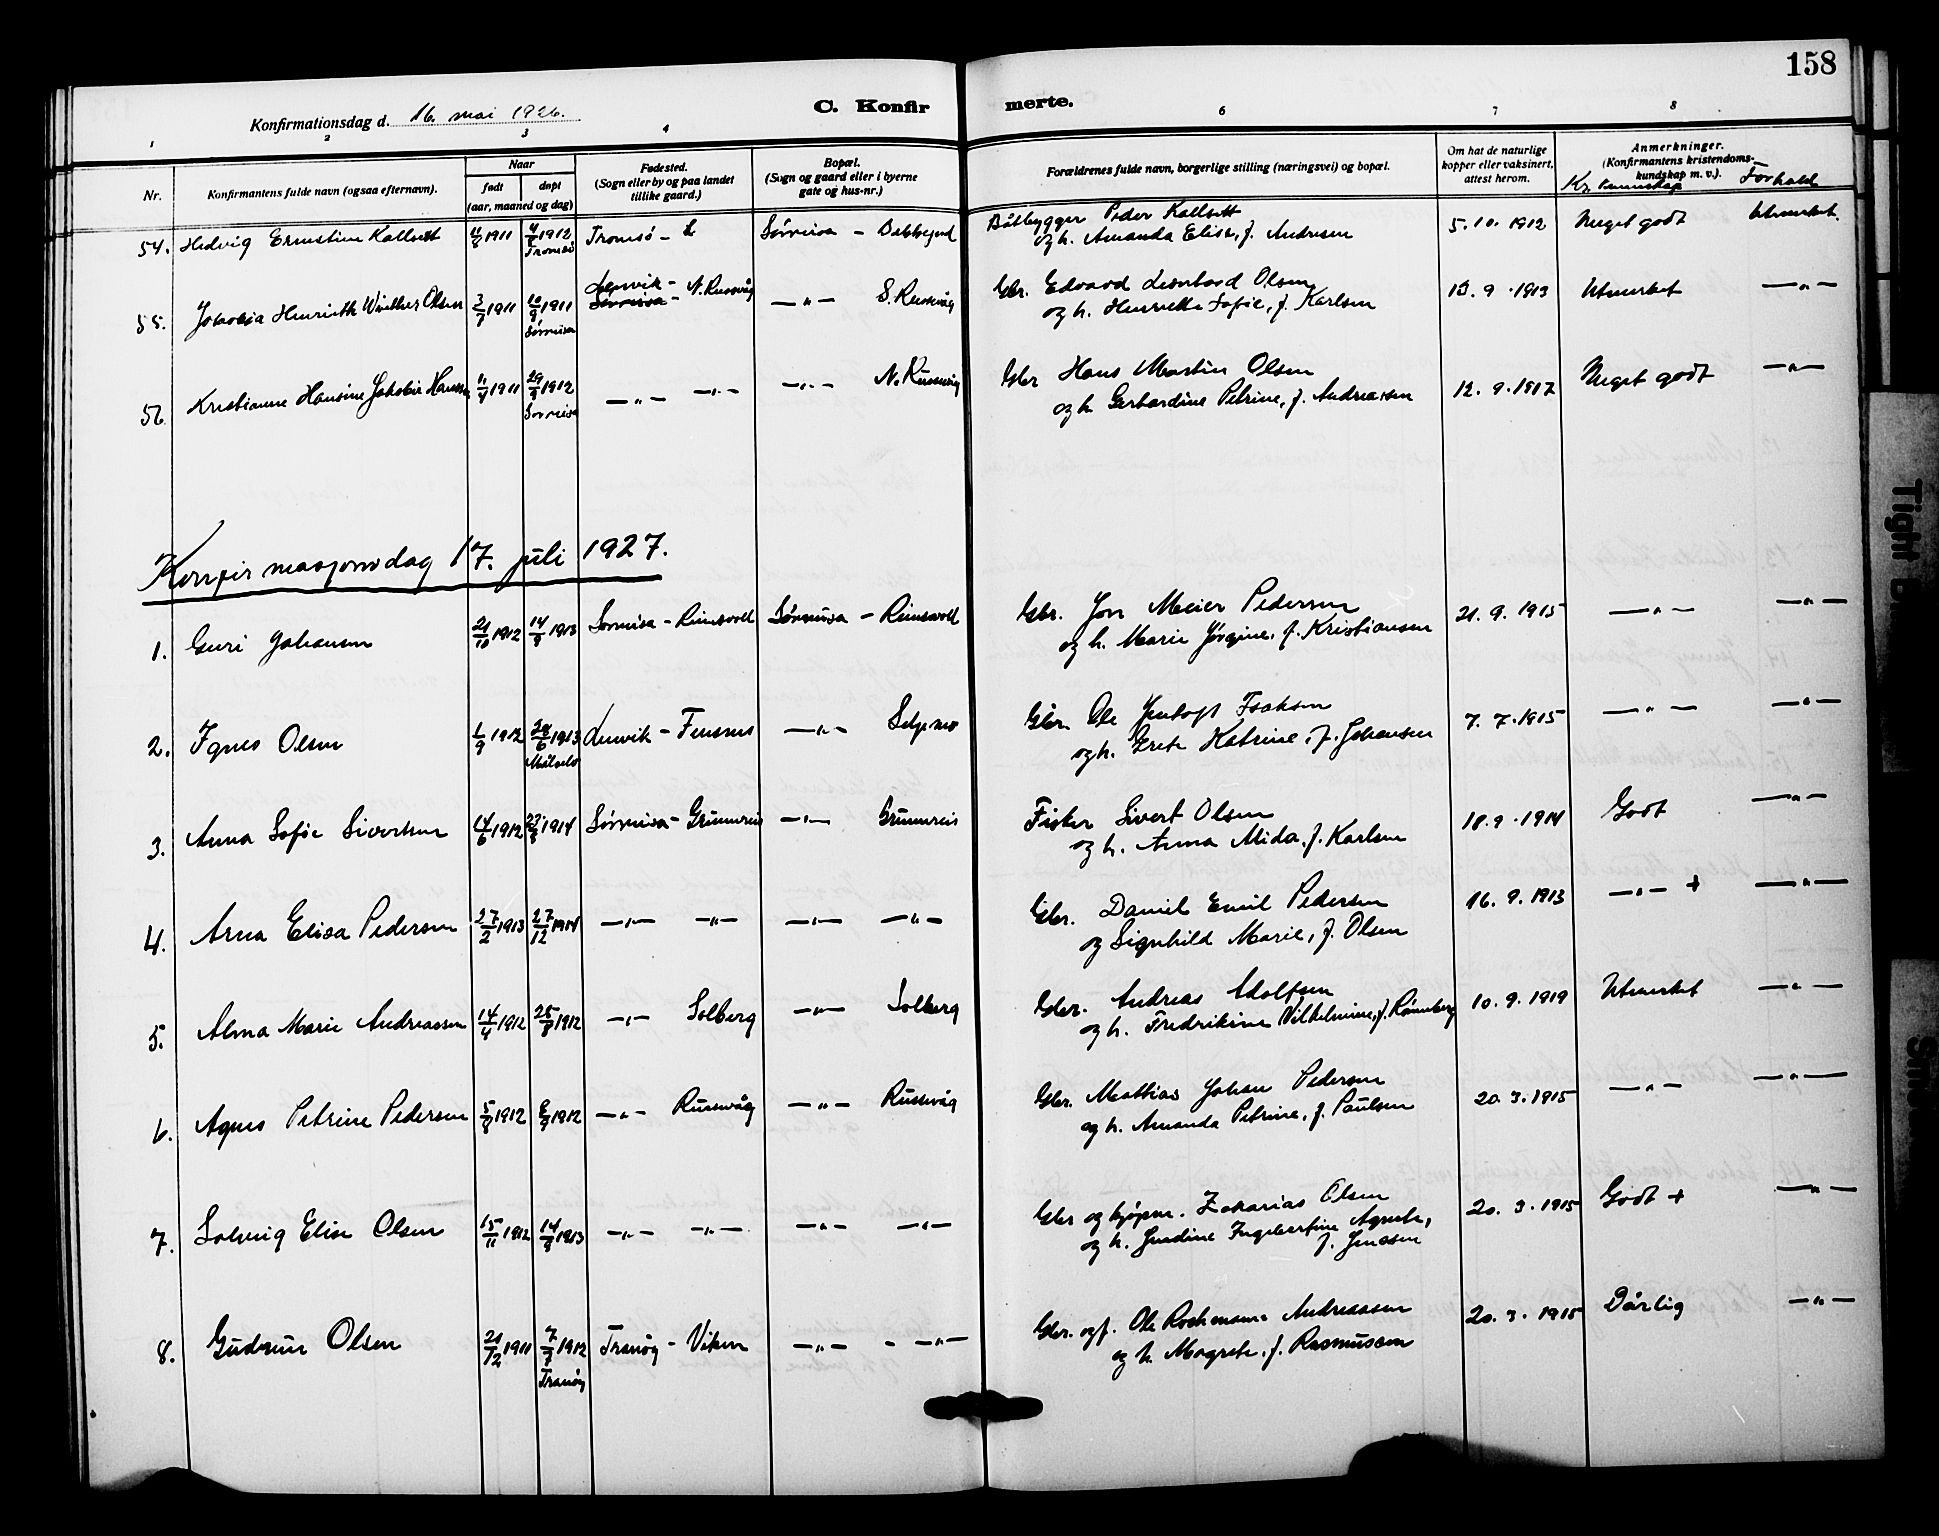 158
C. Konfirmerte.
Konfirmationsdag d. 16. mai 1926.
1 2 3 4 6 7 8
Nr.
Konfirmantens fulde navn (ogsaa efternavn).
Naar
født døpt
(aar, maaned og dag)
Fødested.
(Sogn eller by og paa landet
tillike gaard.)
Bopæl.
(Sogn og gaard eller i byerne
gate og hus-nr.)
Forældrenes fulde navn, borgerlige stilling (næringsvei) og bopæl.
Om hat de naturlige
kopper eller vaksinert,
attest herom.
Anmerkninger.
(Konfirmantens kristendoms-
kundskap m. v.).
Kr. kunnskap Forhold
54. Hedvig Ernstine Kallsett 1911 1912 Tromsø Sørreisa - Bakkejord Båtbygger Peder Kallsett 5.10.1912 Meget godt Utmerket.
Tromsø og h. Amanda Elise, f. Andresen
55. Henriette Olsen 3/7 1911 10/9 1911 Lenvik - N. Russvåg —„— S. Russvåg Gbr. Edvard Leonhard Olsen 15.9.1913 Utmerket —„—
Sørreisa Sørreisa - og h. Henriette Sofie, f. Karlsen
56. Kristianne Hansine Jakobie Hansen 1911 29/9 1912 —„— —„— —„— N. Russvåg Gbr Hans Martin Olsen 12.9.1917 Meget godt —„—
Sørreisa og h. Gerhardine Petrine, f. Andreassen
Konfirmasjonsdag 17. juli 1927.
1. Guri Johansen 21/10 1912 14/9 1913 Sørreisa - Reinsvoll Sørreisa - Reinsvoll Gbr. Jon Meier Pedersen 21.9.1915 —„— —„—
og h. Marie Jørgine, f. Kristiansen
2. Ignes Olsen 1/9 1912 29/6 1913 Lenvik - Finsnes —„— Seljenes Gbr. Ole Jentoft Isaksen 7.7.1915 —„— —„—
Målselv og h. Grete Katrine, f. Johansen
3. Anna Sofie Sivertsen 14/6 1912 1914 Sørreisa - Grunnreis —„— Grunnreis Fisker Sivert Olsen 18.9.1914 Godt —„—
og h. Anna Mida, f. Karlsen
4. Arna Elisa Pedersen 27/2 1913 27/12 1914 —„— —„— —„— —„— Gbr. Daniel Emil Pedersen 16.9.1913 —„— + —„—
og Signhild Marie, f. Olsen
5. Alma Marie Andreassen 14/4 1912 25/7 1912 —„— Solberg —„— Solberg Gbr. Andreas Adolfsen 10.9.1919 Utmerket —„—
og h. Fredrikine Vilhelmine, f. Rønneberg
6. Agnes Petrine Pedersen 5/8 1912 8/9 1912 —„— Russvåg —„— Russvåg Gbr. Mathias Johan Pedersen 20.9.1915 —„— —„—
og h. Amanda Petrine, f. Paulsen
7. Solveig Elise Olsen 15/11 1912 14/9 1913 —„— —„— —„— —„— Gbr og kjøpm. Zakarias Olsen 20.9.1915 Godt + —„—
og h. Gurdine Ingebertine Agnete,
f. Jensen
8. Gudrun Olsen 21/12 1911 7/7 1912 Tranøy - Viken —„— - —„— Gbr. og f. Ole Rochmann Andreassen 20.9.1915 Dårlig —„—
Tranøy og h. Magrete, f. Rasmussen
Tight B